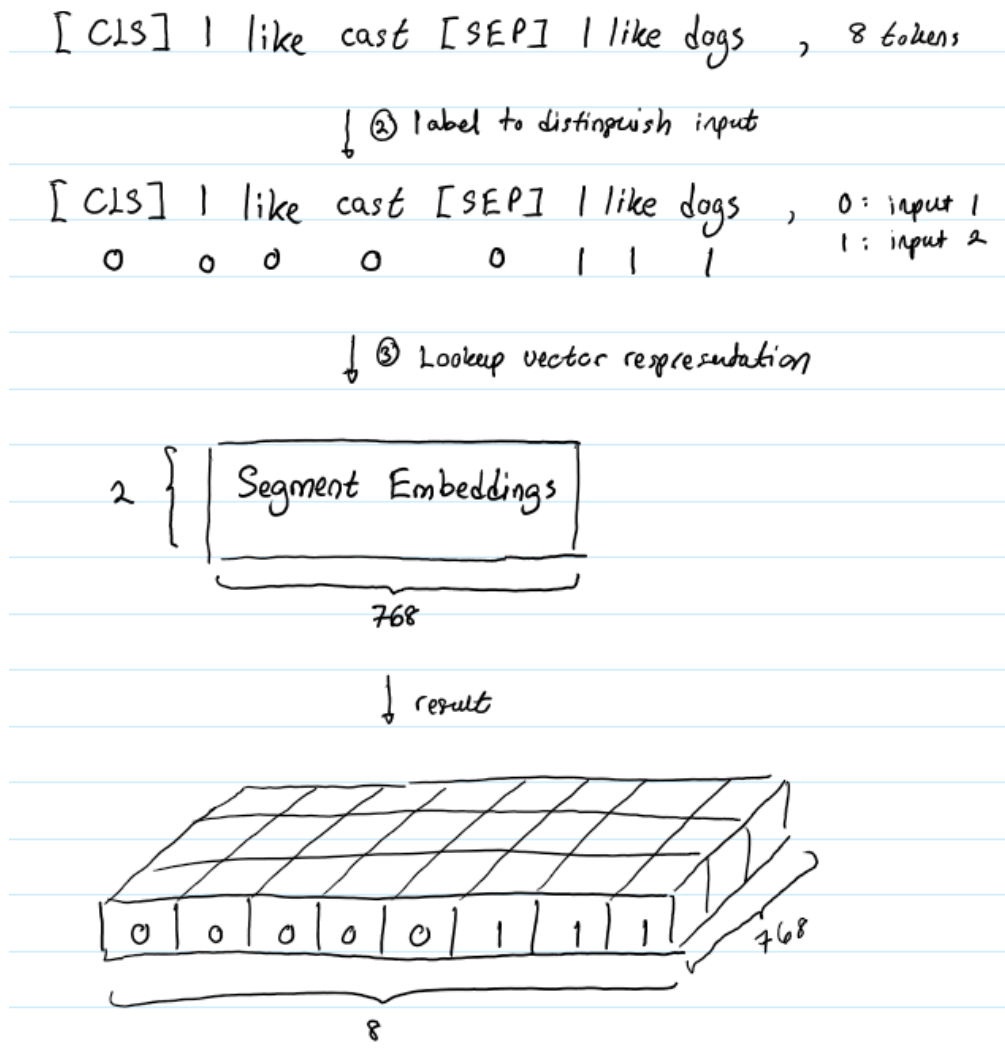 [CLS] I like cast [SEP] I like dogs , 8 tokens
② label to distinguish input
[CLS] I like cast [SEP] I like dogs , 0: input 1
1: input 2
0 0 0 0 0 1 1 1
③ Lookup vector respresentation
2 Segment Embeddings
768
result
0 0 0 0 0 1 1 1
768
8